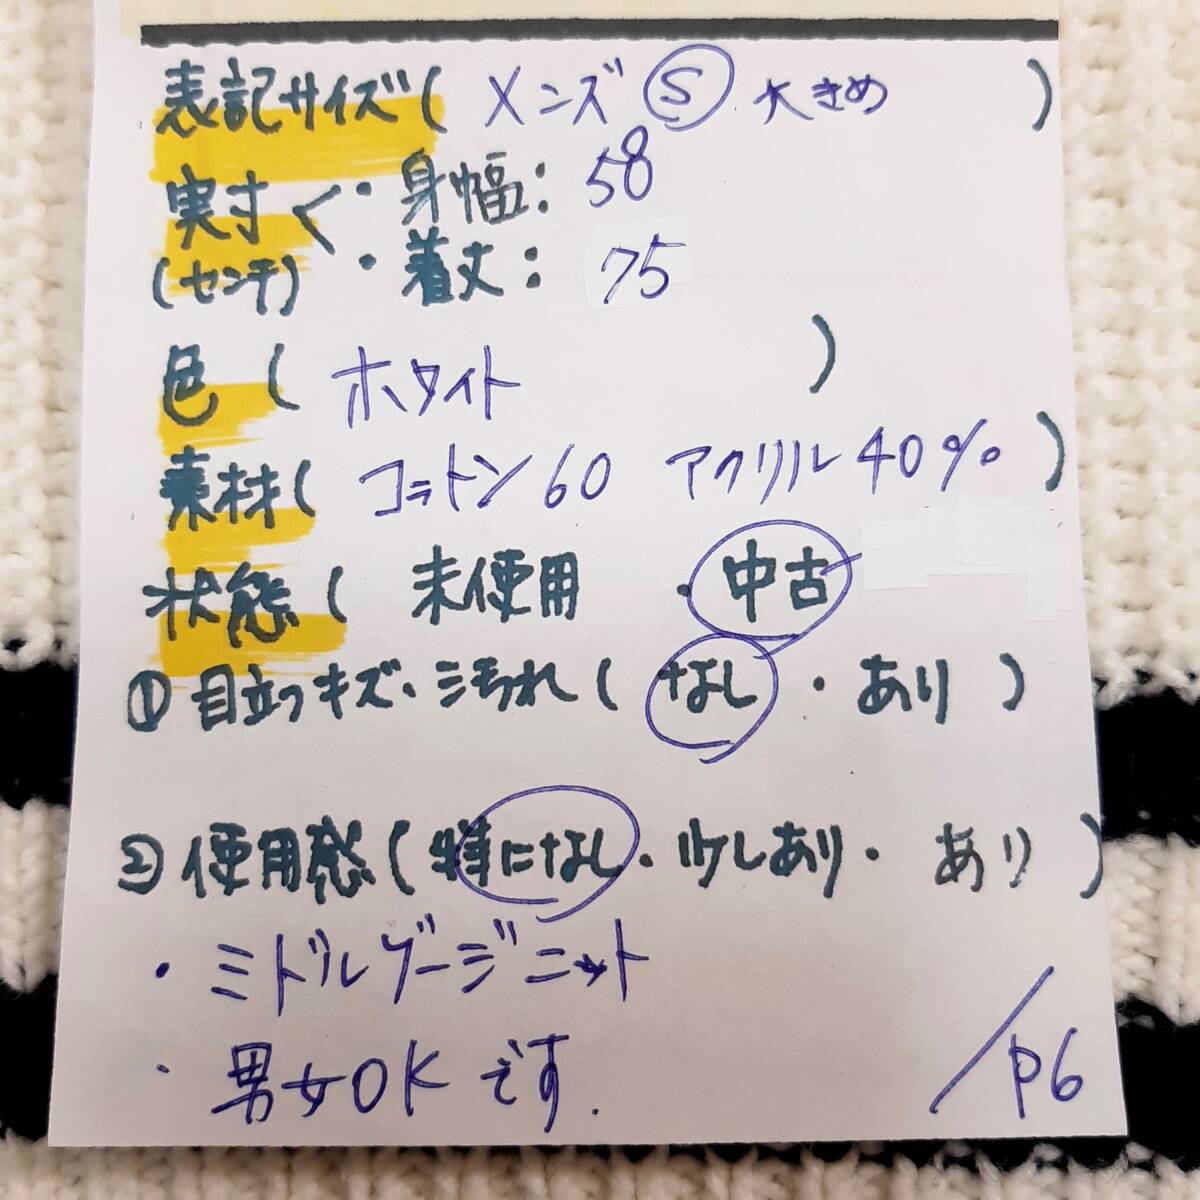 表記サイズ( メンズ Ⓢ 大きめ )
実寸く・身幅: 58
(センチ) ・着丈: 75
色( ホワイト )
素材( コットン60 アクリル40% )
状態( 未使用 ・中古
①目立つキズ・汚れ( なし ・ あり )
②使用感( 特になし・少しあり・ あり )
・ミドルゲージニット
・男女OKです.
/P6